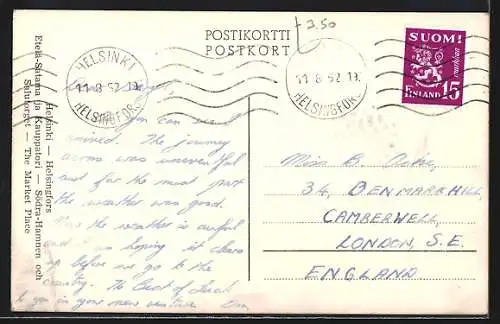 POSTIKORTTI
POSTKORT
+3.50
SUOMI
markkaa
FINLAND 15
HELSINKI
11.8.52.
HELSINGFORS
11.8.52
HELSINGFORS
Helsinki — Helsingfors
Etelä-Satama ja Kauppatori — Södra-Hamnen och
Salutorget — The Market Place
you can see I
arrived. The journey
across was uneventful
and for the most part
the weather was good.
the weather is awful
and I am hoping it clears
up before we go to the
country. The Best of Luck
to you in your new venture
Miss B.
34, DENMARK HILL,
CAMBERWELL,
LONDON, S.E.
ENGLAND